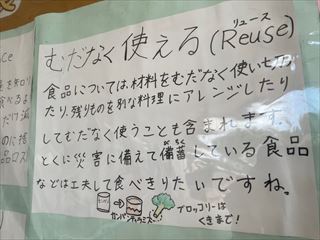 むだなく使える(Reuse)
リュース
食品については、材料をむだなく使い切っ
たり、残りものを別な料理にアレンジしたり
してむだなく使うことも含まれます。
とくに災害に備えて備蓄している食品
などは工夫して食べきりたいですね。
ブロッコリーは
くきまで!